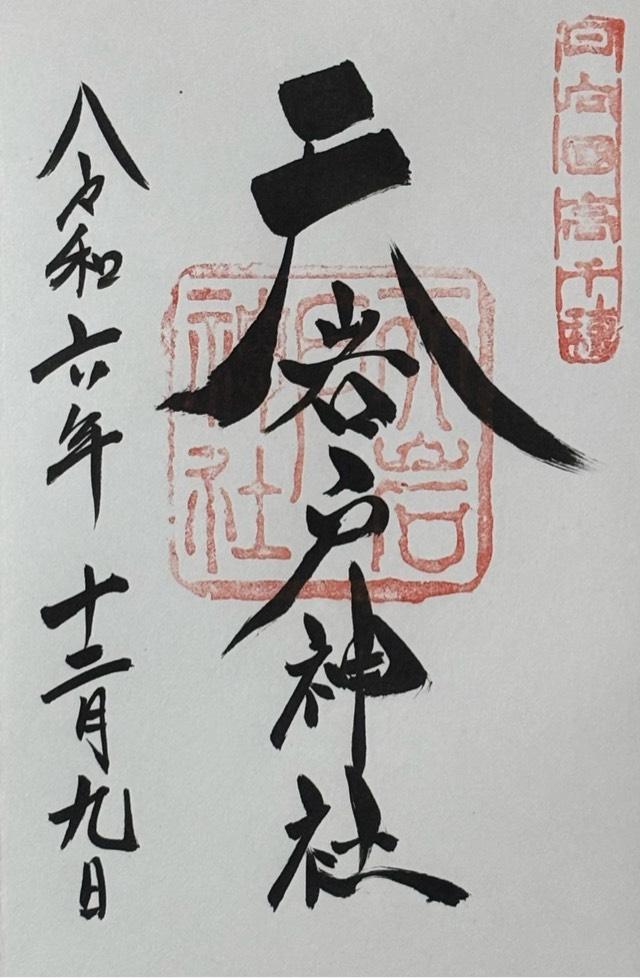 日向國高千穂
天岩戸神社
天岩戸神社
令和六年 十二月九日